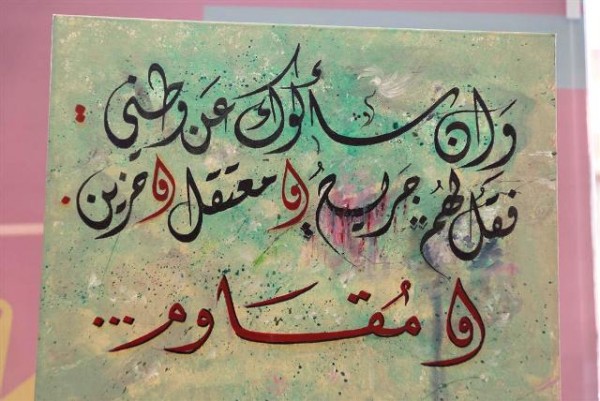 وَإن سألوك عَن وطني :
فقل لهم جريحُ و معتقل و حزين .
و مُقاوم ...